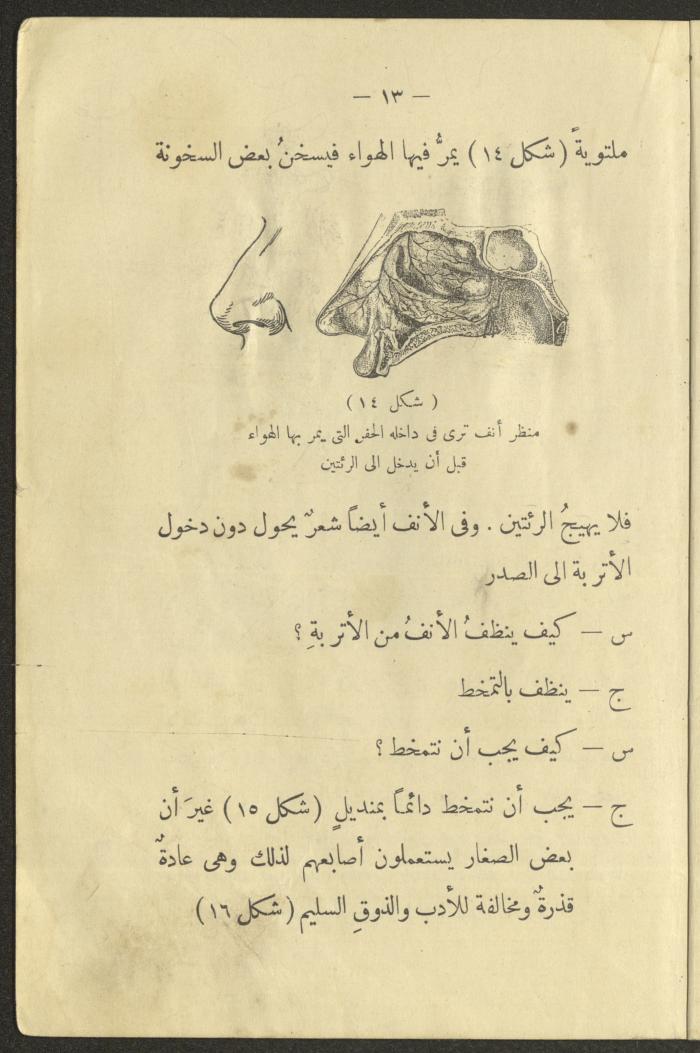 — ١٣ —
ملتويةً (شكل ١٤) يمرُّ فيها الهواء فيسخنُ بعض السخونة
(شكل ١٤)
منظر أنف ترى فى داخله الحفر التى يمر بها الهواء
قبل أن يدخل الى الرئتين
فلا يهيجُ الرئتين . وفى الأنف أيضاً شعرٌ يحول دون دخول
الأتربة الى الصدر
س — كيف ينظفُ الأنفُ من الأتربةِ ؟
ج — ينظف بالتمخط
س — كيف يجب أن نتمخط ؟
ج — يجب أن نتمخط دائماً بمنديلٍ (شكل ١٥) غيرَ أن
بعض الصغار يستعملون أصابعهم لذلك وهى عادةٌ
قذرةٌ ومخالفة للأدب والذوقِ السليم (شكل ١٦)